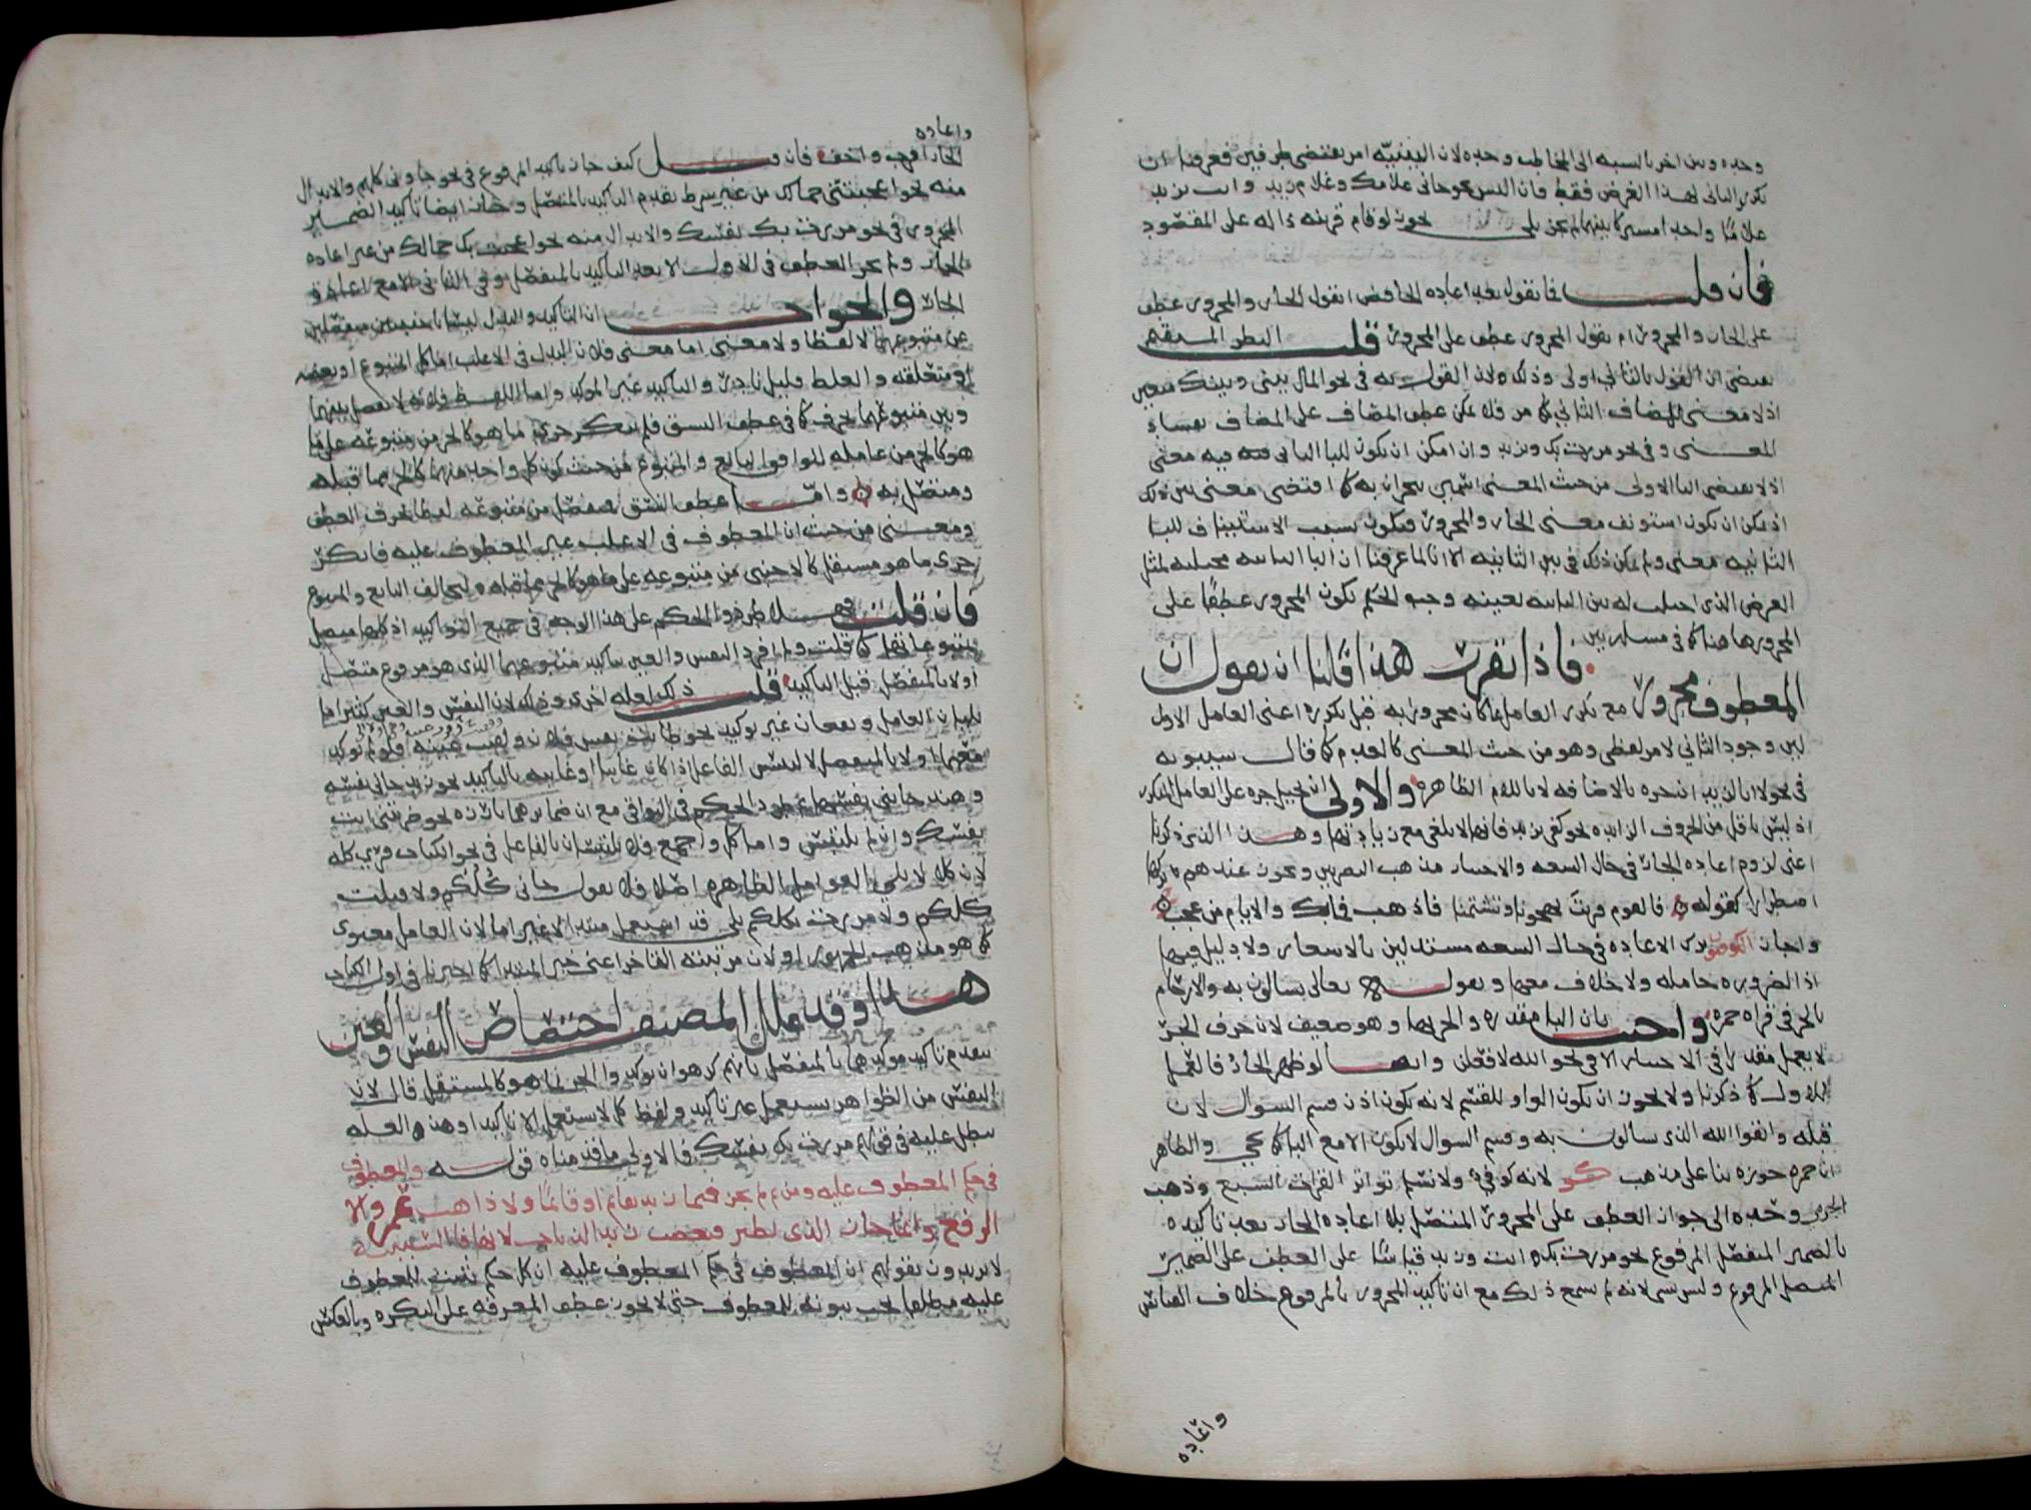 وحده وبين اخر بالنسبه الى المخاطب وحده لان البينيّه امر يقتضى طرفين فعرفنا ان
تكرير الثانى لهذا الغرض فقط فان البس نحو جانى غلامك وغلام زيد وانت تريد
غلامًا واحدا مشتركا بينهما لم يجز بلى يجوز لو قام قرينه داله على المقصود
فان قلت فما تقول بعد اعاده الخافض اتقول الجار والمجرور عطف
على الجار والمجرور ام تقول المجرور عطف على المجرور قلت النظر المستقيم
يقتضى ان القول بالثانى اولى وذلك لان القول به فى نحو المال بينى وبينك متعين
اذ لا معنى للمضاف الثانى كما مر فلا يمكن عطف المضاف على المضاف لفساد
المعنى وفى نحو مررت بك وبزيد وان امكن ان يكون للبا الثانى فيه معنى
اذ لا يقتضى البا الاولى من حيث المعنى اسمين ينجران به كما اقتضى معنى بين ذلك
اذ يمكن ان يكون استونف معنى الجار والمجرور فيكون بسبب الاستيناف للبا
الثانيه معنى ولم يمكن ذلك فى بين الثانيه الا انا لما عرفنا ان البا الثانيه مجتلبه لمثل
الغرض الذى اجتلب له بين الثانيه بعينه وجب الحكم بكون المجرور عطفًا على
المجرور ههنا كما فى مسله بين
فاذا تقرر هذا قلنا ان نقول ان
المعطوف مجرور مع تكرر العامل بما كان مجرورا به قبل تكرره اعنى العامل الاول
لان وجود الثانى لامر لفظى وهو من حيث المعنى كالعدم كما قال سيبويه
فى نحو لا ابا لزيد ان جره بالاضافه لا باللام الظاهره والاولى ان يحيل جره على العامل المكرر
اذ ليس باقل من الحروف الزايده نحو كفى بزيد فانها لا تلغى مع زيادتها وهذا الذى ذكرنا
اعنى لزوم اعاده الجار فى حال السعه والاختيار مذهب البصريين ويجوز عندهم تركها
اضطرارا كقوله فاليوم قربت تهجونا وتشتمنا فاذهب فما بك والايام من عجب
واجاز الكوفيون ترك الاعاده فى حال السعه مستدلين بالاشعار ولا دليل فيها
اذ الضروره حامله ولا خلاف معها وبقوله تعالى تسالون به والارحام
بالجر فى قراه حمزه واجيب بان البا مقدره والجر بها وهو ضعيف لان حرف الجر
لا يعمل مقدرا فى الاختيار الا فى نحو الله لافعلن وايضا لو ظهر الجار فالعمل
للاول كما ذكرنا ولا يجوز ان يكون الواو للقسم لانه يكون اذن قسم السوال لان
قبله واتقوا الله الذى تسالون به وقسم السوال لا يكون الا مع البا كما يجى والظاهر
ان حمزه جوزه بنا على مذهب كو لانه كوفى ولا نسلم تواتر القرات السبع وذهب
الجرمى وحده الى جواز العطف على المجرور المتصل بلا اعاده الجار بعد تاكيده
بالضمير المنفصل المرفوع نحو مررت بك انت وزيد قياسًا على العطف على الضمير
المتصل المرفوع وليس بشى لانه لم يسمع ذلك مع ان تاكيد المجرور بالمرفوع خلاف القياس
واعاده
واعاده
الجار اقرب واخف فان قيل كيف جاز تاكيد المرفوع فى نحو جاونى كلهم والابدال
منه نحو اعجبتنى جمالك من غير شرط تقدم التاكيد بالمنفصل وجاز ايضا تاكيد الضمير
المجرور فى نحو مررت بك نفسك والابدال منه نحو اعجبت بك جمالك من غير اعاده
الجار ولم يجز العطف فى الاول الا بعد التاكيد بالمنفصل وفى الثانى الا مع اعاده
الجار والجواب ان التاكيد والبدل ليسا باجنبيين منفصلين
عن متبوعهما لا لفظا ولا معنى اما معنى فلان البدل فى الاغلب اما كل المتبوع او بعضه
او متعلقه والغلط قليل نادر والتاكيد عين الموكد واما اللفظ فلانه لا يفصل بينهما
وبين متبوعهما بحرف كما فى عطف النسق فلم ينكر جرى ما هو كالجز من متبوعه على ما
هو كالجز من عامله لتوافق التابع والمتبوع من حيث كون كل واحد منهما كالجز مما قبله
ومتصل به واما عطف النسق فمنفصل من متبوعه لفظا بحرف العطف
ومعنى من حيث ان المعطوف فى الاغلب غير المعطوف عليه فانكر
جرى ما هو مستقل كالاجنبى من متبوعه على ما هو كالجز مما قبله لتخالف التابع والمتبوع
فان قلت فهلا طردوا الحكم على هذا الوجه فى جميع التواكيد اذ كلها متصل
بمتبوعاتها كما قلت ولم افرد النفس والعين بتاكيد متبوعهما الذى هو مرفوع متصل
اولا بالمنفصل قبل التاكيد قلت ذلك لعله اخرى وذلك لان النفس والعين كثيرا ما
يليان العامل ويقعان غير توكيد نحو طابت نفس فلان ولقيت عينه فلو لم توكد
معهما اولا بالمنفصل لالتبس الفاعل اذا كان غايبا او غايبه بالتاكيد نحو زيد جانى نفسه
وهند جاتنى نفسها ثم طرد الحكم فى البواقى مع ان ضمايرها بارزه نحو ضربتنى انت
نفسك وان لم يلتبس واما كل واجمع فلا يلتبسان بالفاعل فى نحو الكتاب قرى كله
لان كلا لا يلى العوامل الظاهره اصلا فلا تقول جانى كلكم ولا قتلت
كلكم ولا مررت بكلكم بلى قد استعمل مبتدا لا غير اما لان العامل معنوى
كما هو مذهب الجمهور او لان مرتبته التاخر اعنى خبر المبتدا كما اخترنا فى اول الكتاب
هذا وقد علل المصنف اختصاص النفس والعين
بتقدم تاكيد موكدهما بالمنفصل بانهم كرهوا ان يوكدوا الجز بما هو كالمستقل قال لان
النفس من الظواهر يستعمل غير تاكيد ولفظ كل لا يستعمل الا تاكيدا وهذه العله
تبطل عليه فى قولهم مررت بك نفسك فالاولى ما قدمناه قوله والمعطوف
فى حكم المعطوف عليه ومن ثم لم يجز فى ما زيد بقايم او قائمًا ولا ذاهب عمرو الا
الرفع وانما جاز الذى يطير فيغضب زيد الذباب لانها فا السببيه
لا يريدون بقولهم ان المعطوف فى حكم المعطوف عليه ان كل حكم يثبت للمعطوف
عليه مطلقا يجب ثبوته للمعطوف حتى لا يجوز عطف المعرفه على النكره وبالعكس